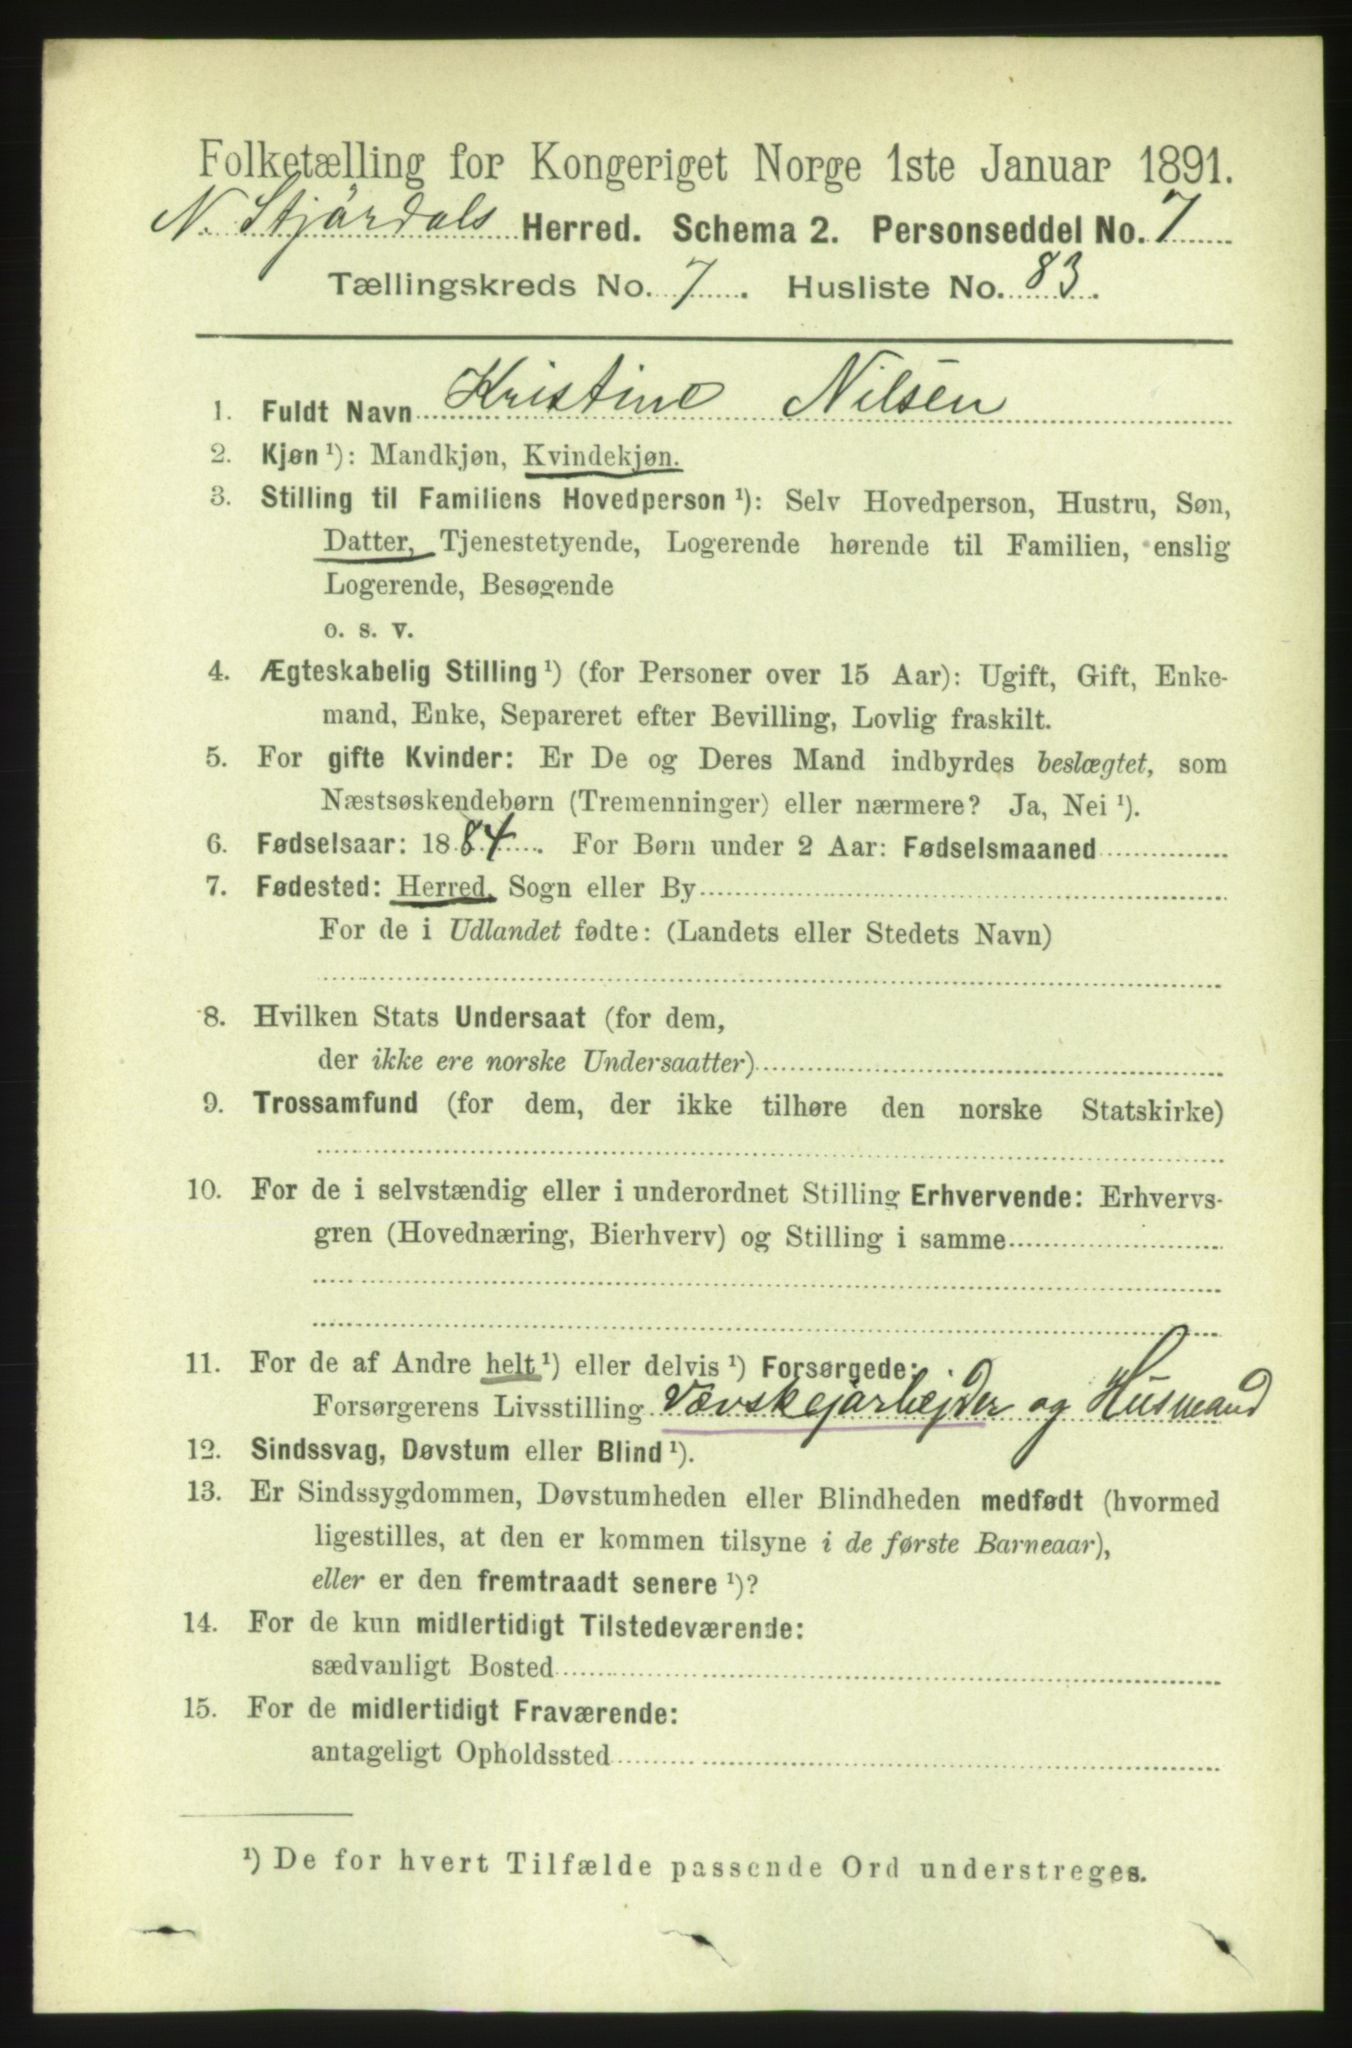 Folketælling for Kongeriget Norge 1ste Januar 1891.
N. Stjørdals Herred. Schema 2. Personseddel No. 7
Tællingskreds No. 7. Husliste No. 83.
1. Fuldt Navn Kristine Nilsen
2. Kjøn ¹): Mandkjøn, Kvindekjøn.
3. Stilling til Familiens Hovedperson ¹): Selv Hovedperson, Hustru, Søn,
Datter, Tjenestetyende, Logerende hørende til Familien, enslig
Logerende, Besøgende
o. s. v.
4. Ægteskabelig Stilling ¹) (for Personer over 15 Aar): Ugift, Gift, Enke-
mand, Enke, Separeret efter Bevilling, Lovlig fraskilt.
5. For gifte Kvinder: Er De og Deres Mand indbyrdes beslægtet, som
Næstsøskendebørn (Tremenninger) eller nærmere? Ja, Nei ¹).
6. Fødselsaar: 1884. For Børn under 2 Aar: Fødselsmaaned
7. Fødested: Herred, Sogn eller By
For de i Udlandet fødte: (Landets eller Stedets Navn)
8. Hvilken Stats Undersaat (for dem,
der ikke ere norske Undersaatter)
9. Trossamfund (for dem, der ikke tilhøre den norske Statskirke)
10. For de i selvstændig eller i underordnet Stilling Erhvervende: Erhvervs-
gren (Hovednæring, Bierhverv) og Stilling i samme
11. For de af Andre helt ¹) eller delvis ¹) Forsørgede:
Forsørgerens Livsstilling Vævskejarbejder og Husmand
12. Sindssvag, Døvstum eller Blind ¹).
13. Er Sindssygdommen, Døvstumheden eller Blindheden medfødt (hvormed
ligestilles, at den er kommen tilsyne i de første Barneaar),
eller er den fremtraadt senere ¹)?
14. For de kun midlertidigt Tilstedeværende:
sædvanligt Bosted
15. For de midlertidigt Fraværende:
antageligt Opholdssted
¹) De for hvert Tilfælde passende Ord understreges.